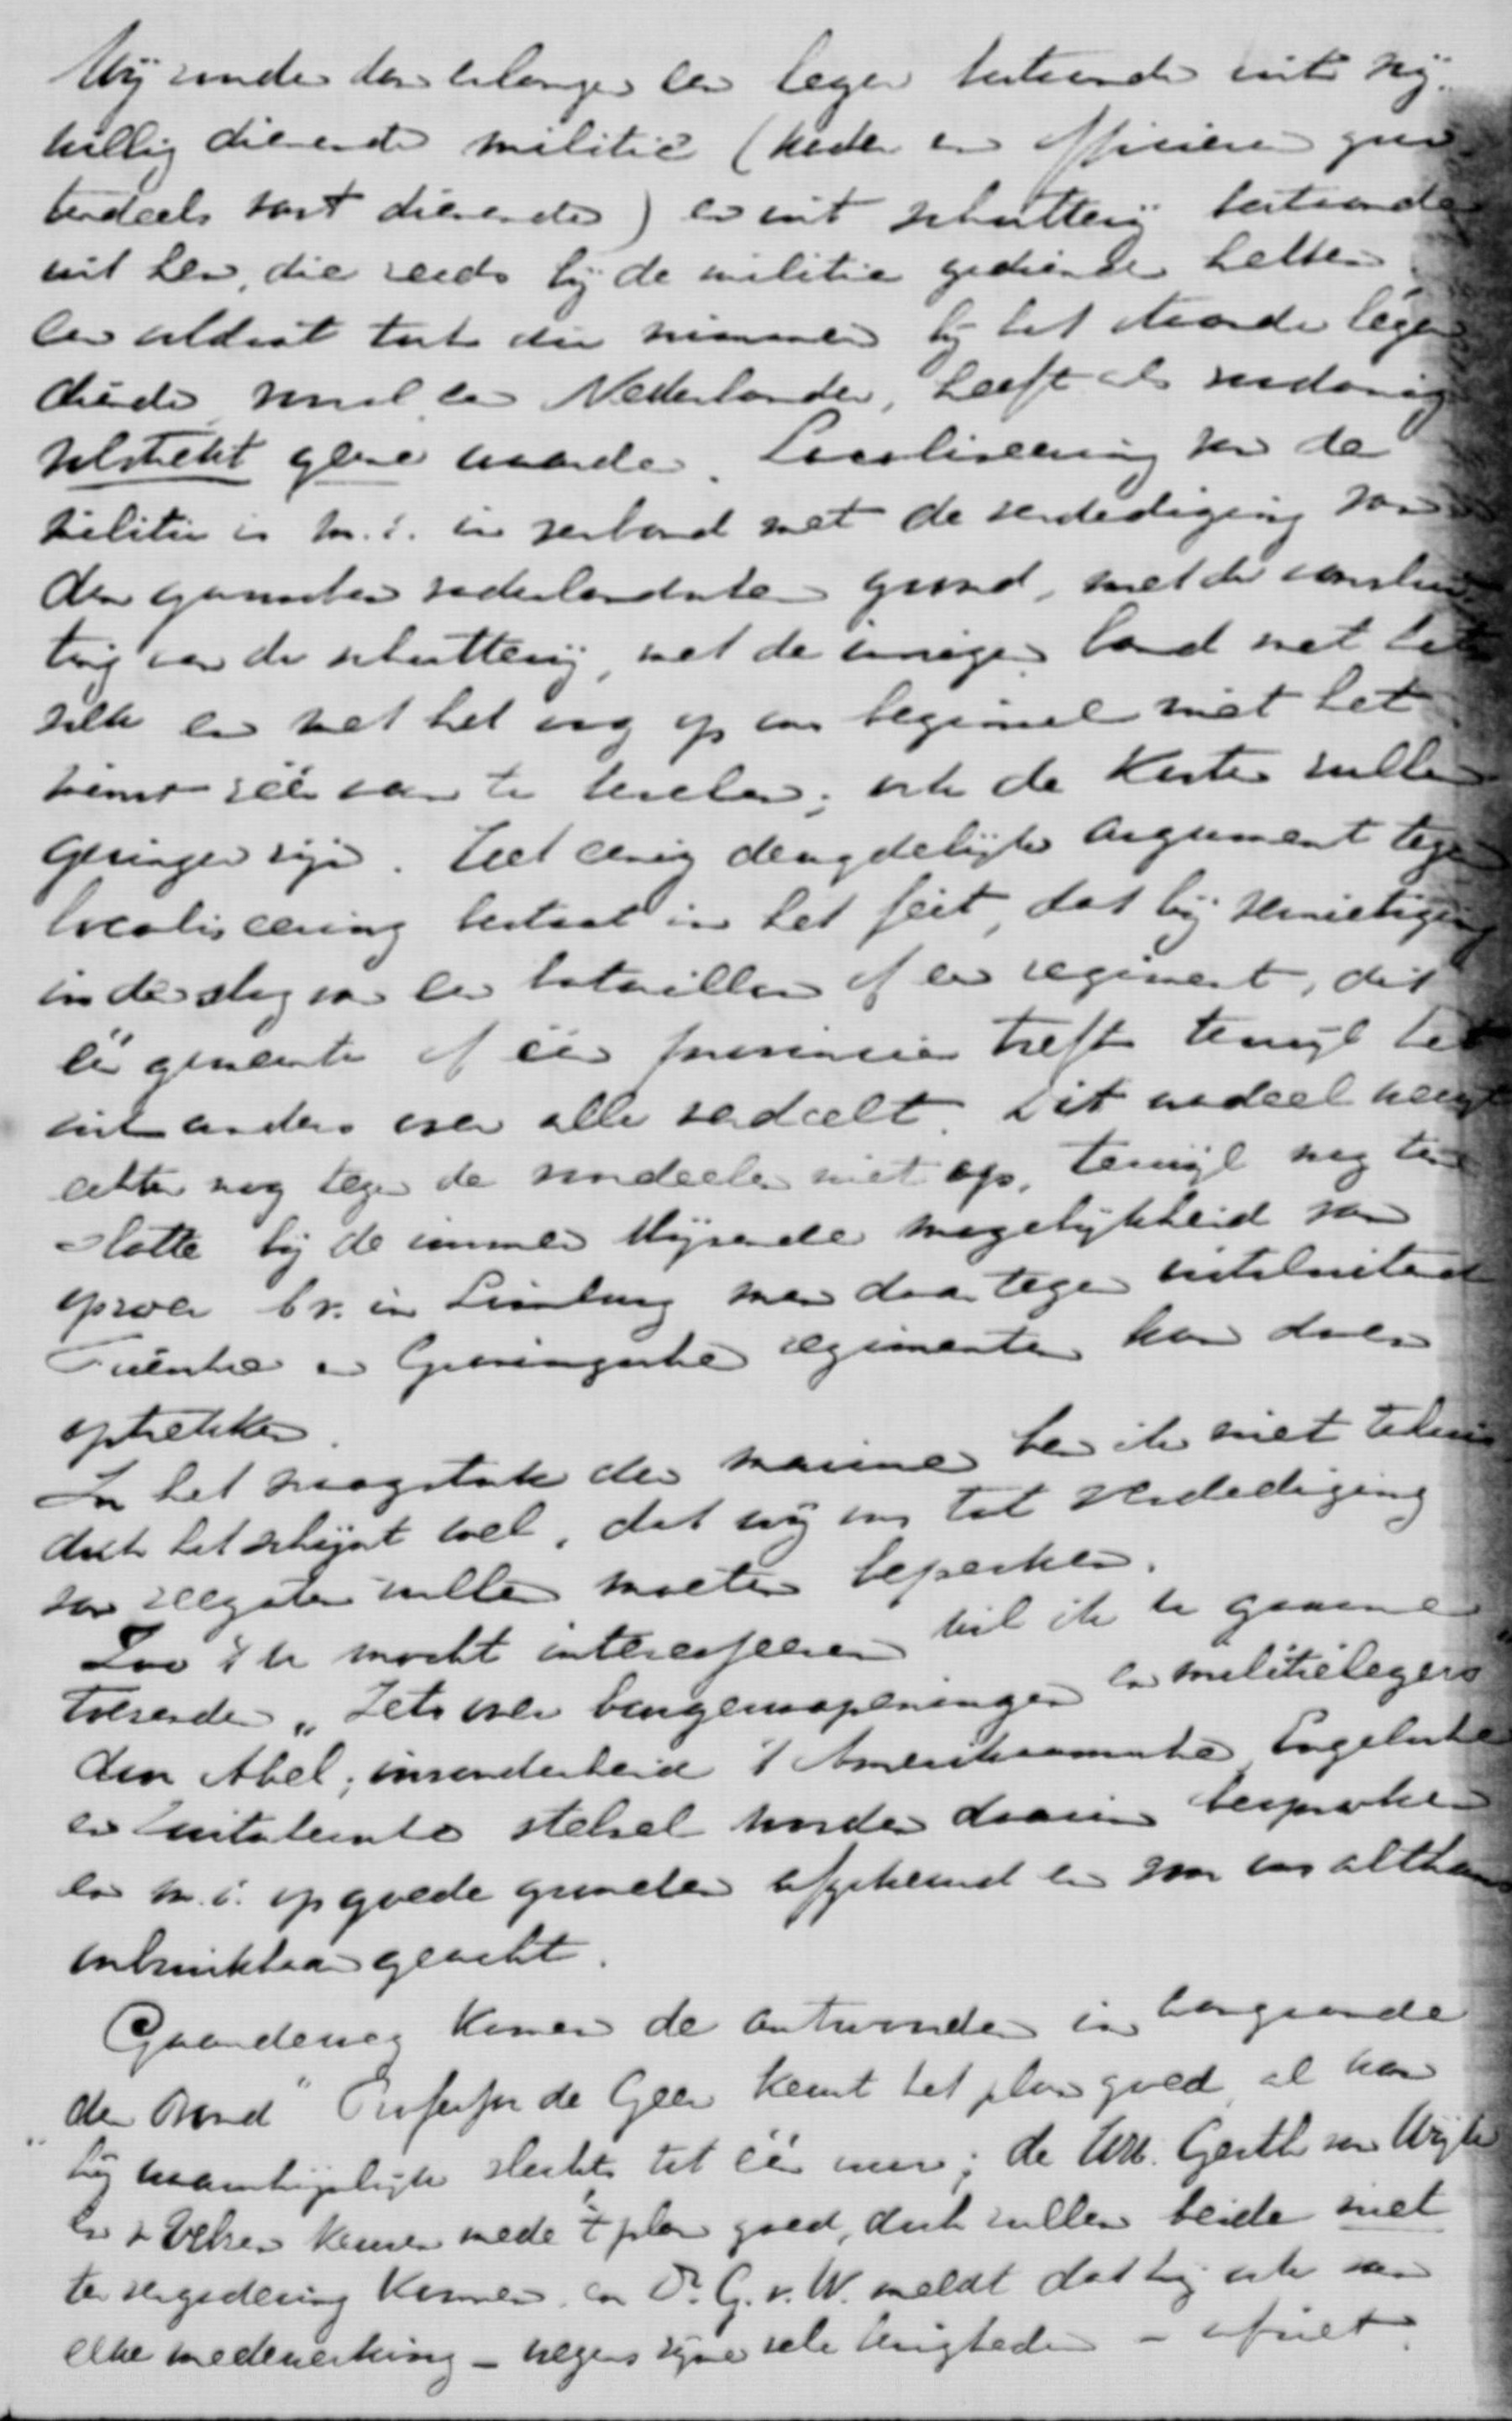 Wij zouden dan erlangen een leger bestaande uit vrij-
willig dienende militie (kader en officieren groo-
tendeels vast dienende) en uit schutterij bestaande
uit hen, die reeds bij de militie gediend hebben.
Een soldaat toch die nimmer bij het staande leger
diende, vooral een Nederlander, heeft als zoodanig
volstrekt geene waarde. Localiseering van de
militie is m.i. in verband met de verdediging van
den ganschen nederlandschen grond, met de aanslui-
ting van de schutterij, met de innigen band met het
volk en met het oog op ons beginsel niet het
minst zéér aan te bevelen; ook de kosten zullen
geringer zijn. Het eenig deugdelijke argument tegen
localiseering bestaat in het feit, dat bij vernietiging
in den slag van een bataillon of een regiment, dit
één gemeente of één provincie treft terwijl het
zich anders over alle verdeelt. Dit nadeel weegt
echter nog tegen de voordeelen niet op, terwijl nog ten
slotte bij de immer blijvende mogelijkheid van
oproer bv. in Limburg men daartegen uitsluitend
Twentsche en Groningsche regimenten kan doen
optrekken.
In het vraagstuk der marine ben ik niet tehuis
doch het schijnt wel, dat wij ons tot verdediging
van zeegaten zullen moeten beperken.
Zoo 't U mocht interesseeren wil ik U gaarne
toezenden „Iets over burgerwapeningen en militielegers"
den Abel; inzonderheid 't Amerikaansche, Engelsche
en Zwitsersche stelsel worden daarin besproken
en m.i. op goede gronden afgekeurd en voor ons althans
onbruikbaar geacht.
Gaandeweg komen de antwoorden in aangaande
den Bond" Professor de Geer keurt het plan goed, al kan
hij waarschijnlijk slechts tot één uur; de HH. Gerth van Wijk
en v Velzen keuren mede 't plan goed, doch zullen beide niet
ter vergadering komen, en Dr. G. v. W. meldt dat hij ook van
elke medewerking – wegens zijne vele bezigheden – afziet.